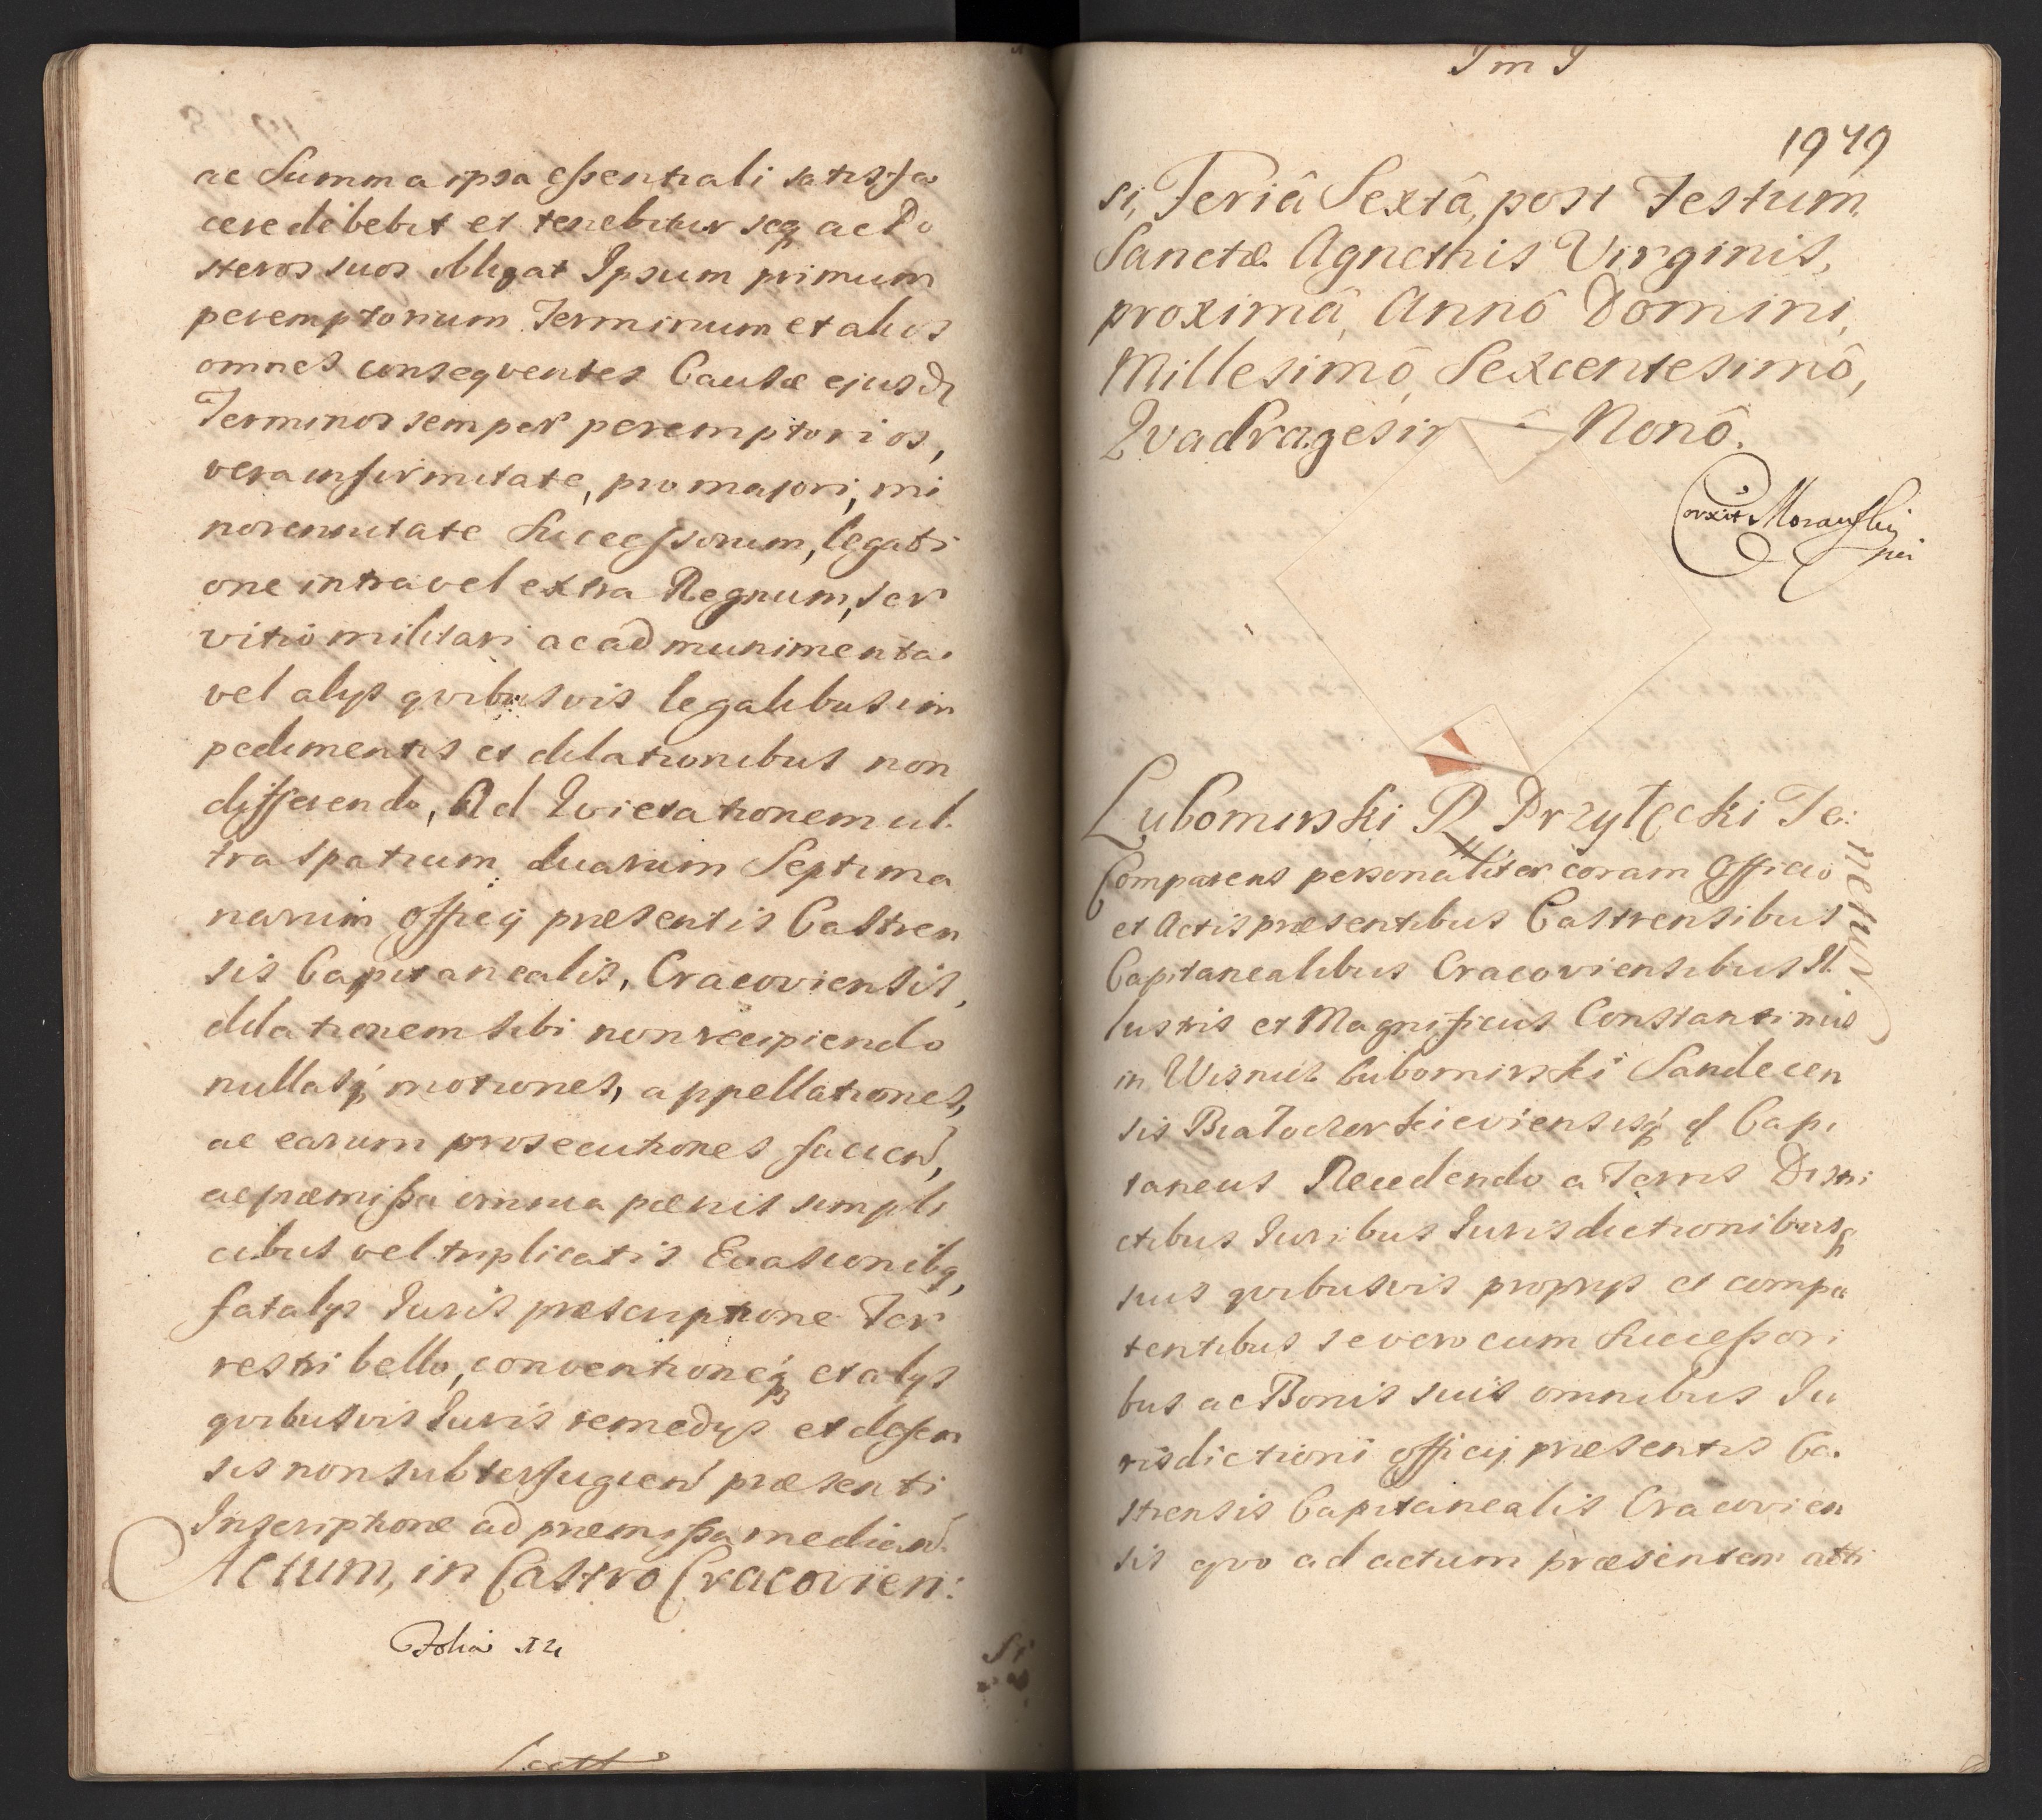 ac Summa ipsa essentiali satisfa
cere debebit et tenebitur seq ac Po
steros suos obligat Ipsum primum
peremptorium Terminum et alios
omnes conseqventes Causæ ejusd
Terminos semper peremptorios,
vera infirmitate, pro majori, mi
norennitate Successorum, legati
one intra vel extra Regnum, ser
vitio militari ac ad munimenta
vel alys qvibusvis legalibus im
pedimentis et dilationibus non
differendo, Ad Qvietationem ul
tra spatium duarum Septima
narum officij præsentis Castren
sis Capitanealis, Cracoviensis,
dilationem sibi non recipiendo
nullasq motiones, appellationes,
ac earum prosecutiones facien,
ac præmissa omnia pænis simpli
cibus vel triplicatis Evasionibq,
fatalys Juris præscriptione Ter
restri bello, conventioneq et alys
qvibusvis Juris remedys et defen
sis non subterfugien præsenti
Inscriptione ad præmissa median
Actum, in Castro Cracovien:
Folia
1949
si, Feriâ Sextâ, post Festum
Sanctæ Agnethis Virginis,
proximâ, Annô Domini,
Millesimô, Sexcentesimô,
Qvadragesim Nonô.
Lubomirski R Przyłęcki Te:
netur
Comparens personaliter coram Officio
et Actis præsentibus Castrensibus
Capitanealibus Cracoviensibus Il
lustris et Magnificus Constantinus
in Wisnicz Lubomirski Sandecen
sis Białocerkieviensisq Capi
taneus Recedendo a Terris Distri
ctibus Juribus Jurisdictionibusq
suis qvibusvis proprys et compe
tentibus se vero cum Successori
bus ac Bonis suis omnibus Ju
risdictioni officij præsentis Ca
strensis Capitanealis Cracovien
sis qvo ad actum præsentem atti